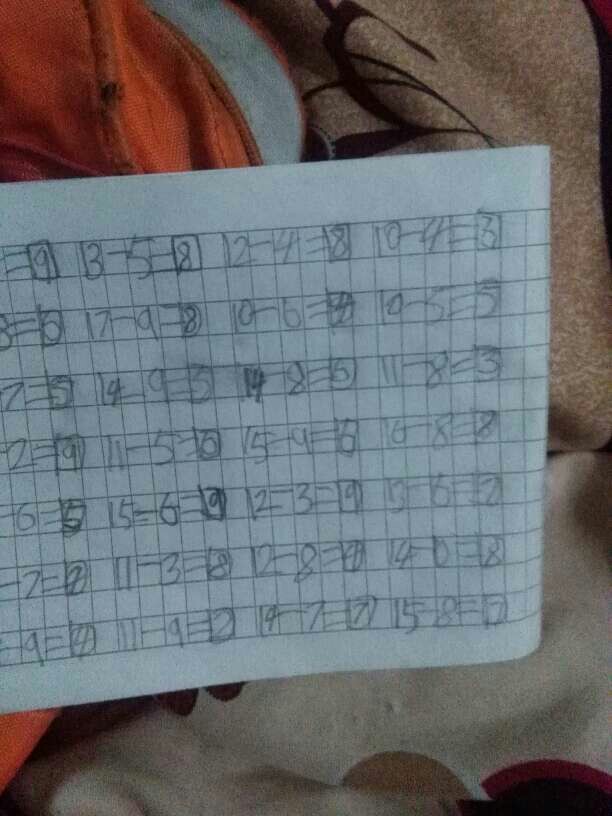 =9 13-5=8 12-4=8 10-4=3
8=6 17-9=8 10-6=4 10-5=5
7=5 14-9=5 14-8=6 11-8=3
-2=9 11-5=6 15-9=6 16-8=8
-6=5 15-6=9 12-3=9 13-6=7
-7= 11-3=8 12-8=4 14-6=8
-9=4 11-9=2 14-7=7 15-8=7